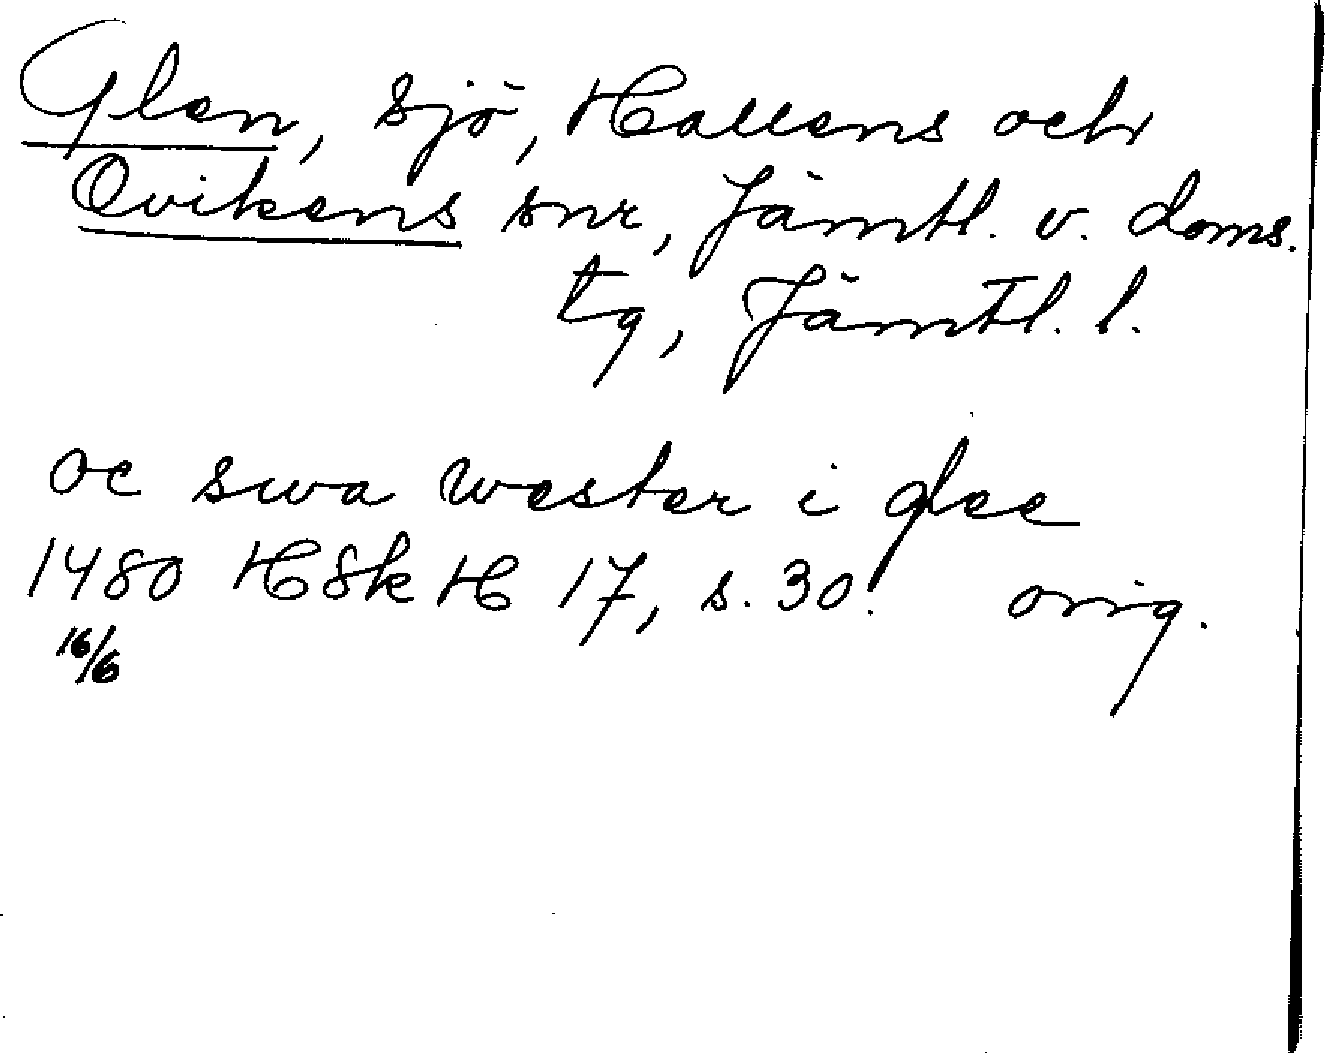 Glen, sjö, Hallens och
Ovikens snr, Jämtl. v. doms.
tg, Jämtl. l.
oc swa wester i glee
1480 HSkH 17, s. 30. orig.
16/6